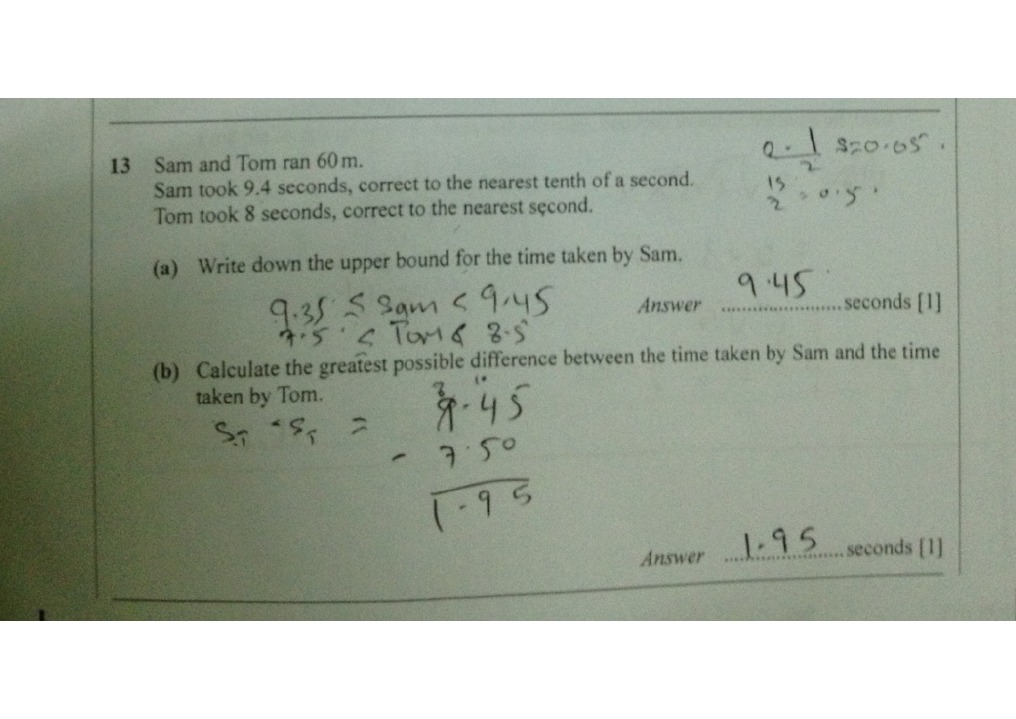 13 Sam and Tom ran 60 m.
Sam took 9.4 seconds, correct to the nearest tenth of a second.
Tom took 8 seconds, correct to the nearest second.
0.1/2 s=0.05.
1s/2 = 0.5.
(a) Write down the upper bound for the time taken by Sam.
9.35 ≤ Sam < 9.45
Answer 9.45 seconds [1]
7.5 ≤ Tom < 8.5
(b) Calculate the greatest possible difference between the time taken by Sam and the time
taken by Tom.
9.45
- 7.50
1.95
Answer 1.95 seconds [1]